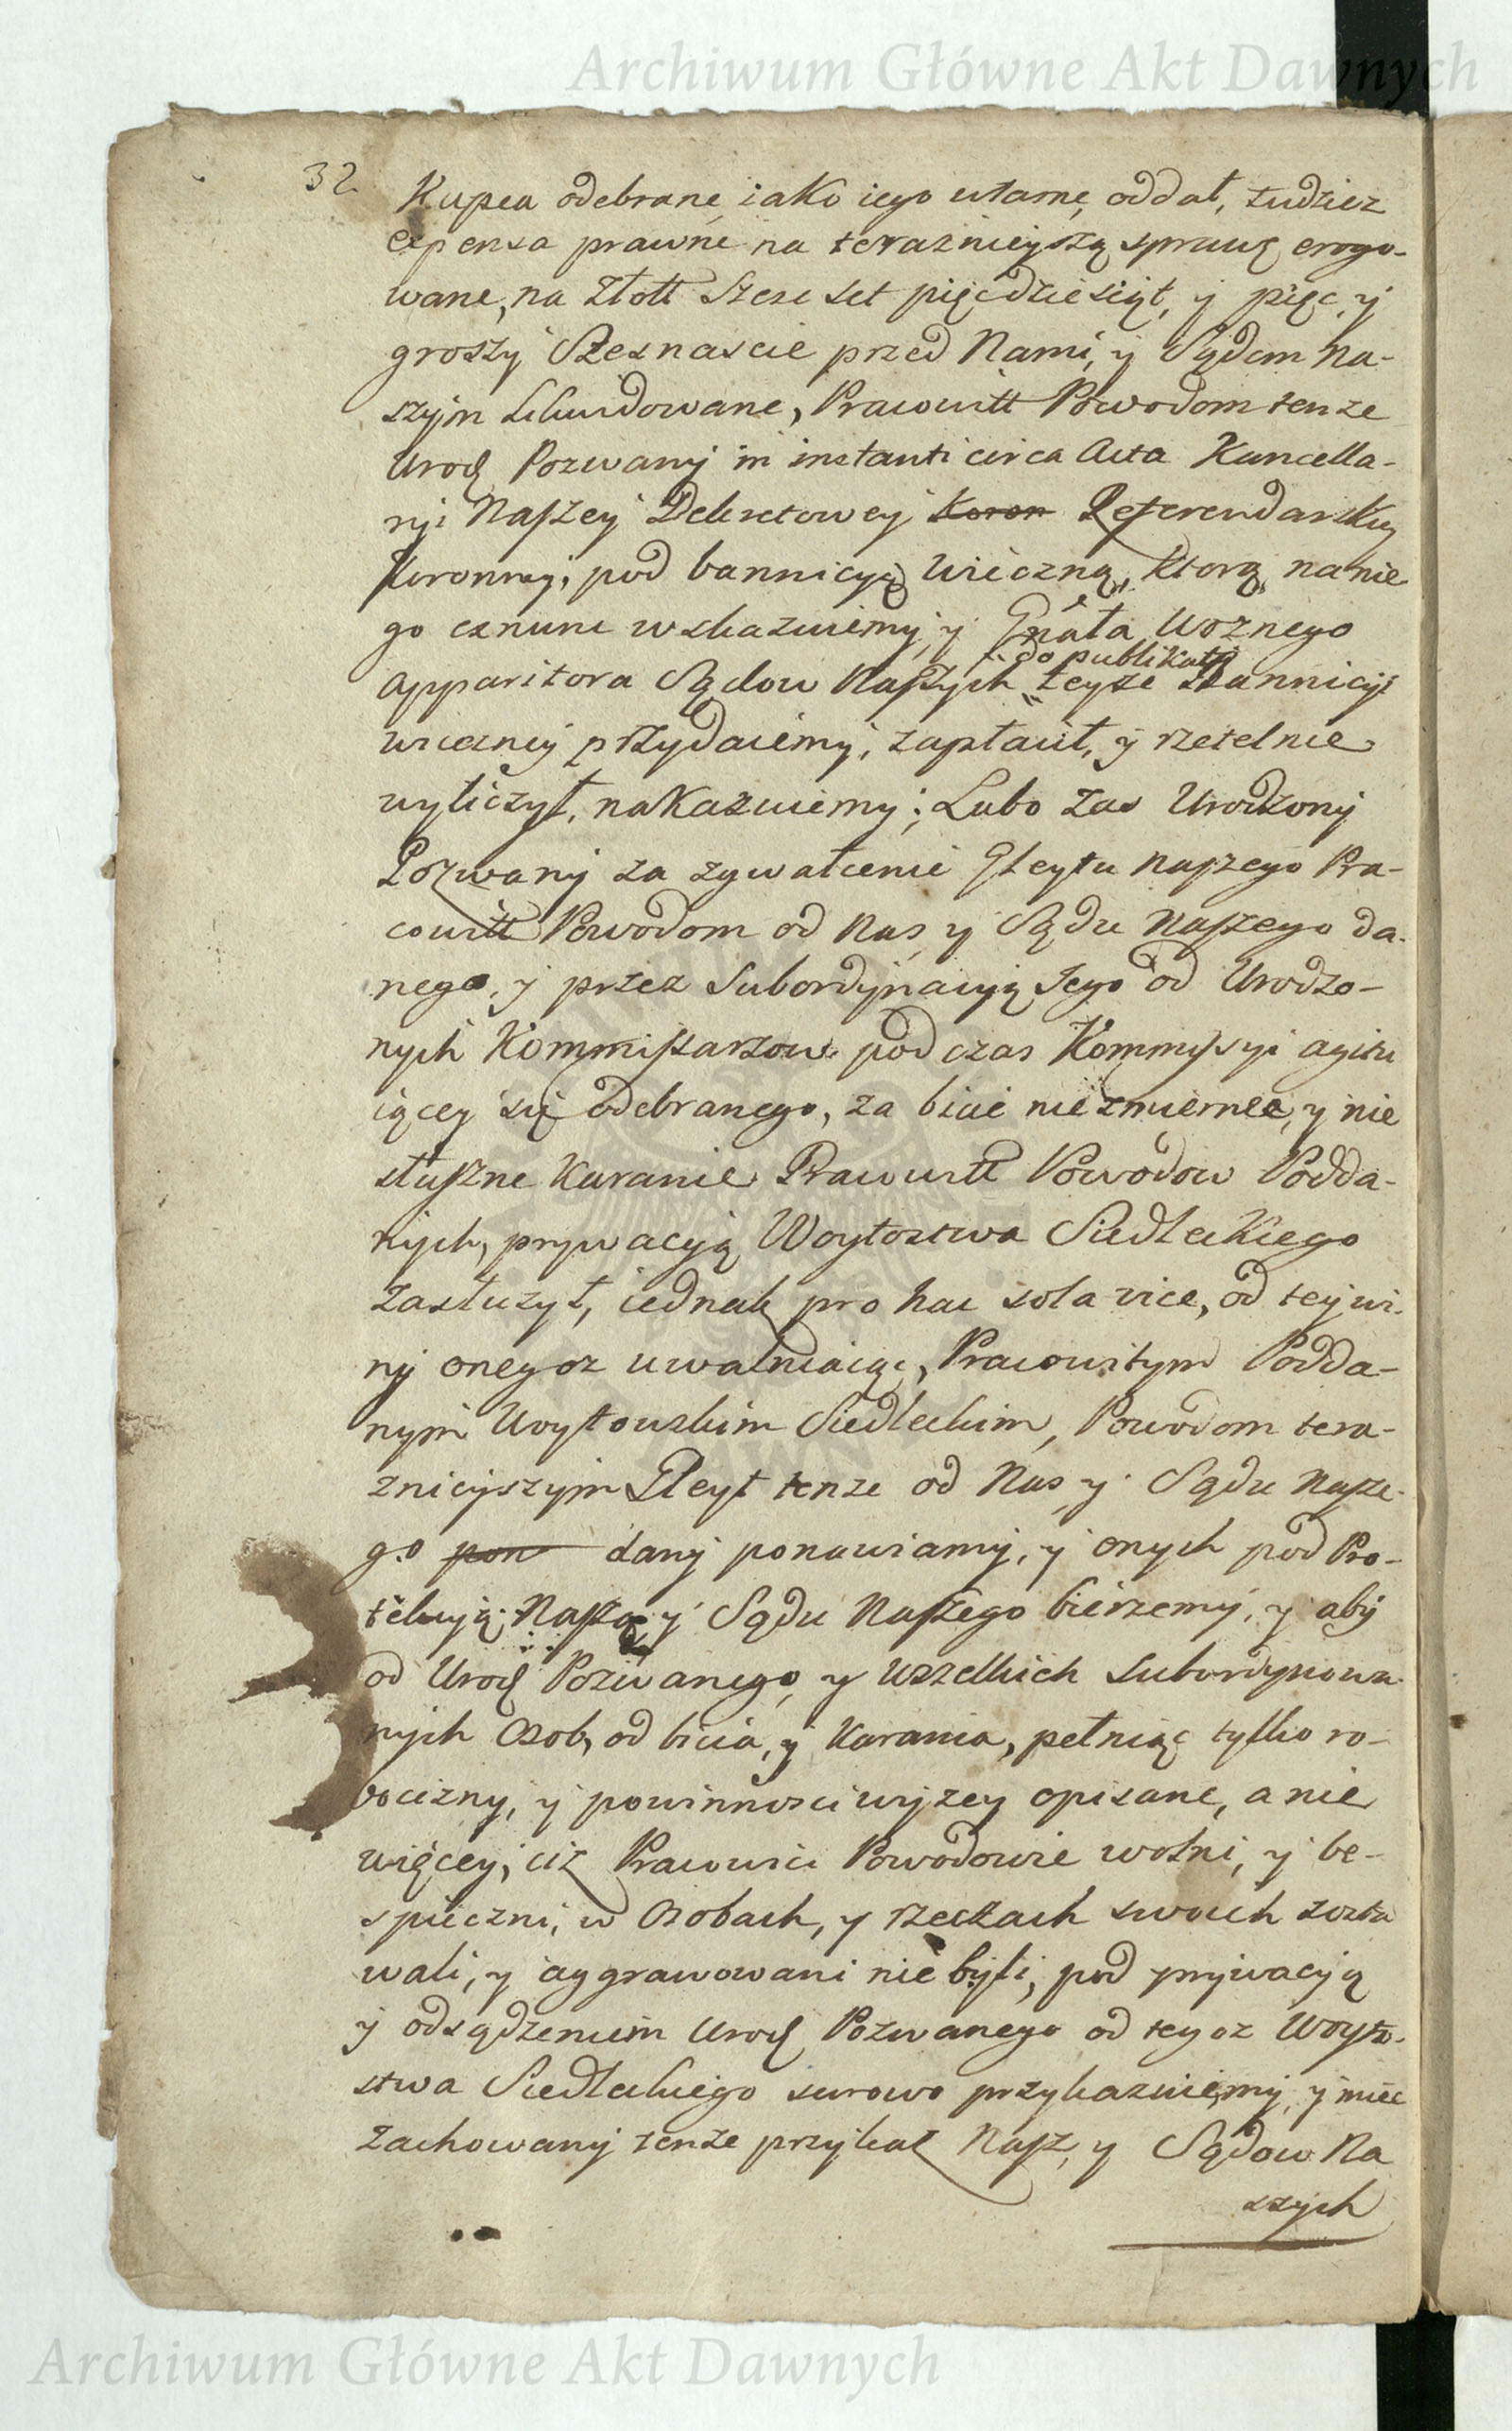 Archiwum Główne Akt Dawnych
32
Kupca odebrane, iako iego własne, oddał, tudziez
expensa prawne na teraznieyszą sprawę erogo-
wane, na Złott Szescset pięcdziesiąt, y pięc, y
groszy Szesnascie przed Nami, y Sądem Na-
szym likwidowane, Pracowitt Powodom tenze
Urod Pozwany in instanti circa Acta Kancella-
ryi Naszey Dekretowey Koron Referendarskiey
Koronney, pod bannicyą wieczną, ktorą na nie
go exnunc wskazuiemy, y Gnała Woznego
do publikaty
apparitora Sądow Naszych teyze Bannicyi
wieczney przydaiemy, zapłacił, y rzetelnie
wyliczył, nakazuiemy; Lubo zas Urodzony
Pozwany za zgwałcenie Gleytu Naszego Pra-
cowitt Powodom od Nas y Sądu Naszego da-
nego, y przez subordynacyią Jego od Urodzo-
nych Kommissarzow pod czas Kommissyi agitu
iącey się odebranego, za bicie niezmierne, y nie
słuszne karanie Pracowitt Powodow Podda-
nych, prywacyią Woytostwa Siedleckiego
zasłuzył, iednak pro hac sola vice, od tey wi-
ny onegoz uwalniaiąc, Pracowitym Podda-
nym Woytowskim Siedleckim, Powodom tera-
znieyszym Gleyt tenze od Nas y Sądu Nasze-
go pon dany ponawiamy, y onych pod Pro-
tekcyią Naszą y Sądu Naszego bierzemy, y aby
od Urod Pozwanego, y wszelkich subordynowa-
nych Osob, od bicia, y karania, pełniąc tylko ro-
bocizny, y powinnosci wyzey opisane, a nie
więcey, ciz Pracowici Powodowie wolni, y be-
spieczni, w Osobach, y rzeczach swoich zosta
wali, y aggrawowani nie byli, pod prywacyią
y odsądzeniem Urod Pozwanego od tegoz Woyto-
stwa Siedleckiego surowo przykazuiemy, y miec
zachowany tenze przykaz Nasz, y Sądow Na
szych
Archiwum Główne Akt Dawnych